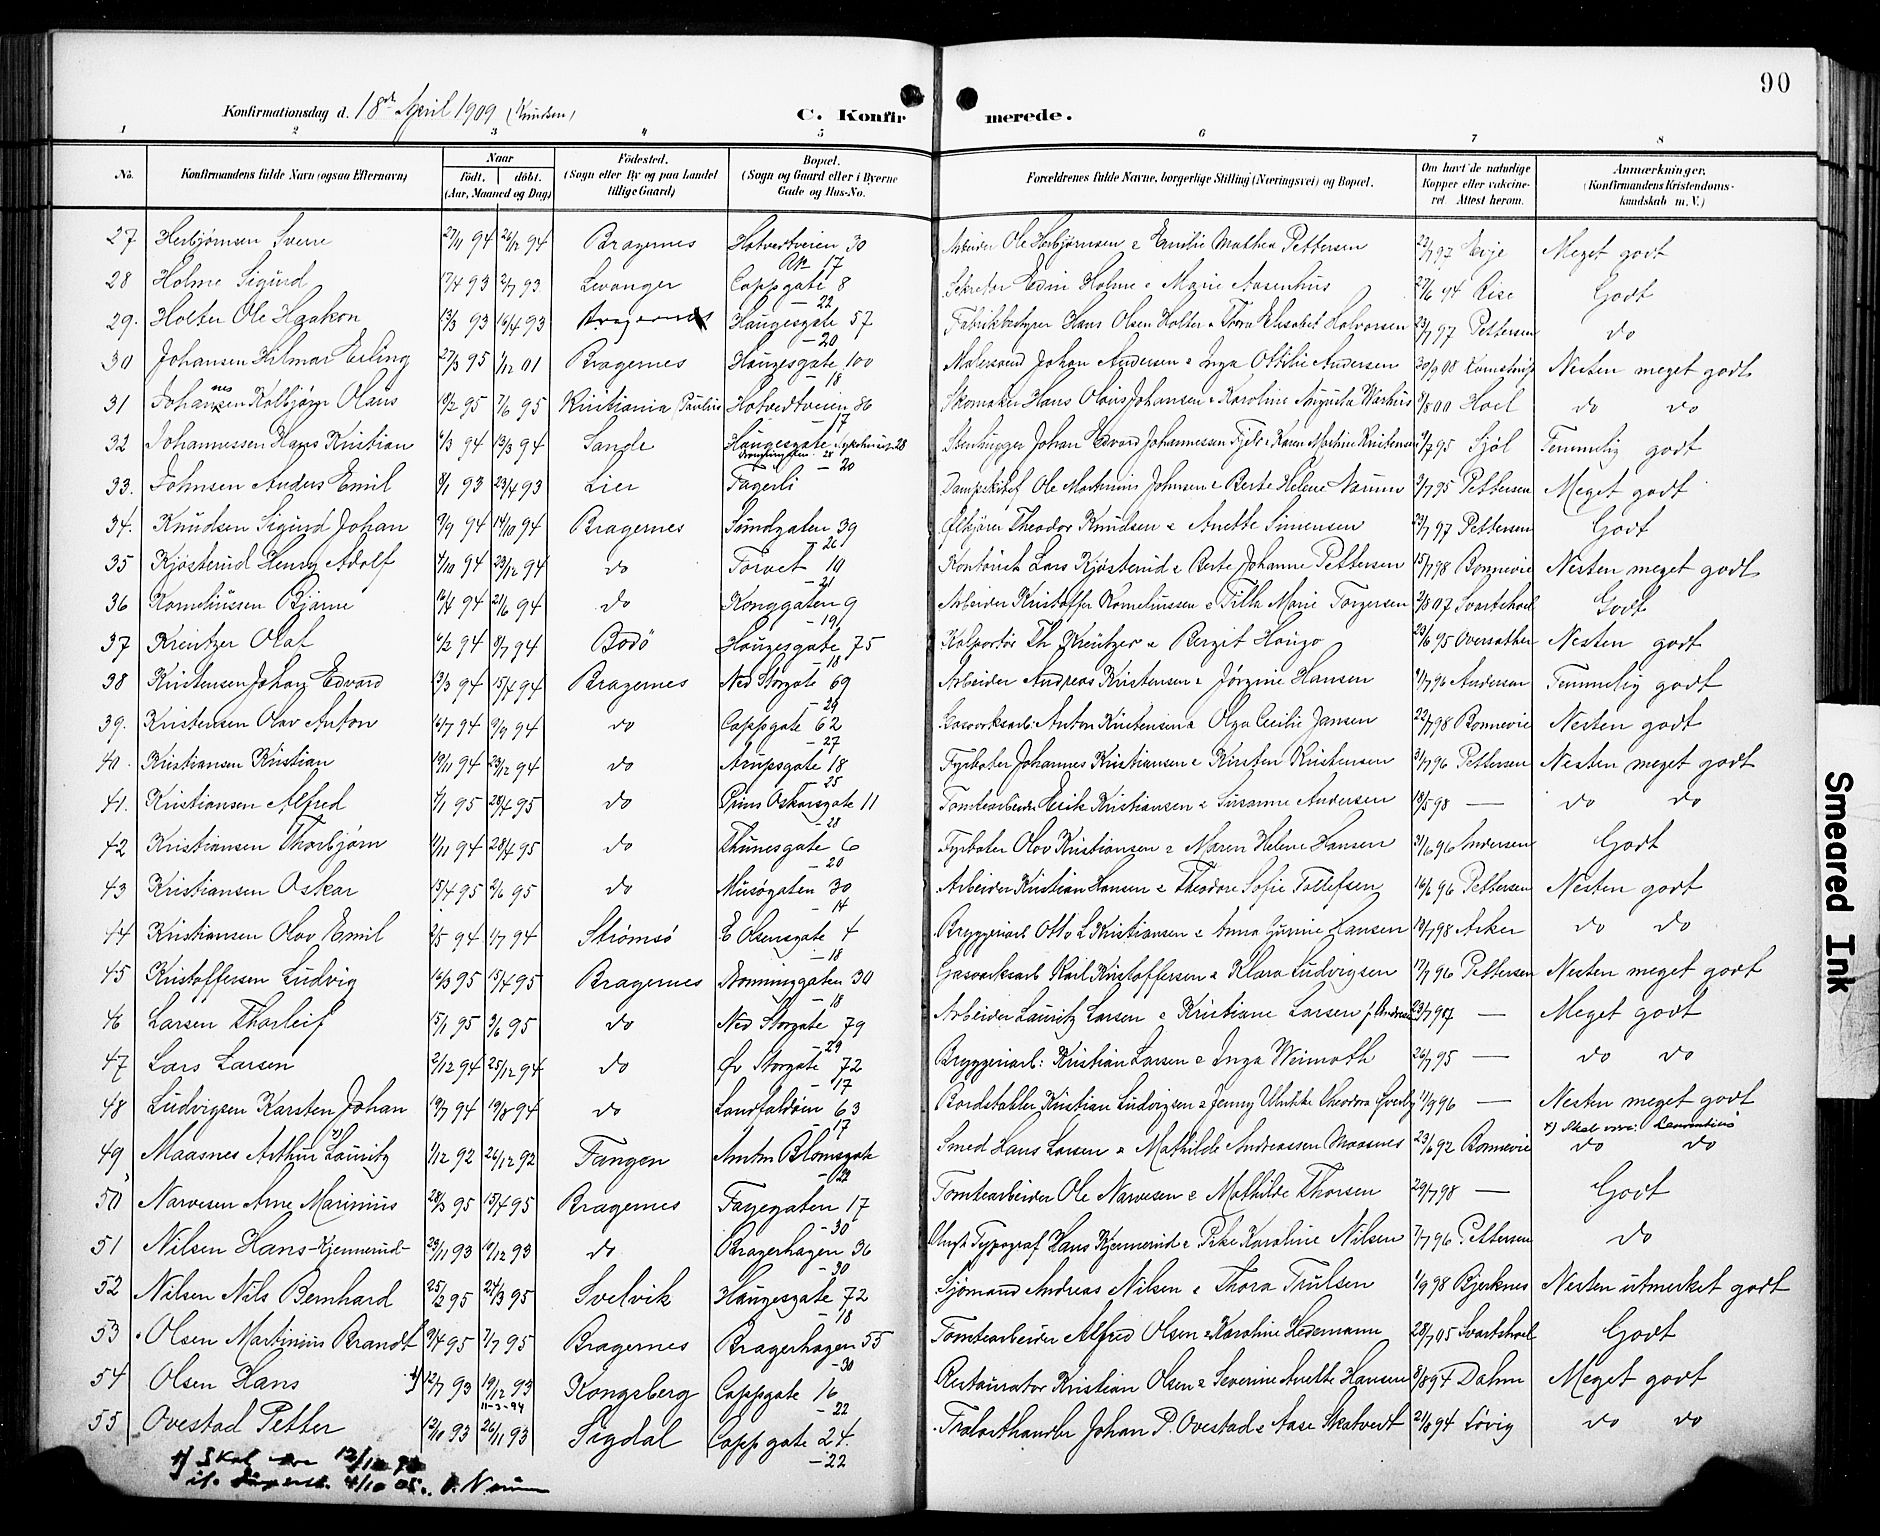 90
Konfirmationsdag d. 18de April 1909 (Knudsen)
C. Konfirmerede.
1 2 3 4 5 6 7 8
No. Konfirmandens fulde Navn (ogsaa Efternavn) Naar födt. döbt. (Aar, Maaned og Dag) Födested. (Sogn eller By og paa Landet tillige Gaard) Bopæl. (Sogn og Gaard eller i Byerne Gade og Hus-No. Forældrenes fulde Navne, borgerlige Stilling (Næringsvei) og Bopæl. Om havt de naturlige Kopper eller vakcineret Attest herom. Anmærkninger. (Konfirmandens Kristendomskundskab m. V.)
27 Herbjørnsen Sverre 27/11 94 26/12 94 Bragernes Hotvedtveien 30 Arbeider Ole Herbjørnsen & Emilie Mathea Pettersen 22/7 97 Evje Meget godt
17
28 Holme Sigurd 17/4 93 2/7 93 Levanger Cappgate 8 Sekretær Edin Holme & Marie Aasenhus 27/6 94 Rise Godt
– 22
29. Holter Ole Haakon 13/3 93 16/4 93 Bragernes Haugesgate 57 Fabrikbestyrer Hans Olsen Holter & Thora Elisabet Halvorsen 23/7 97 Pettersen do
– 20
30 Johansen Hilmar Erling 27/3 95 1/12 01 Bragernes Haugesgate 100 Malersvend Johan Andersen & Inga Ottilie Andersen 30/9 08 Nesten meget godt
– 18
31 Johannesen Kolbjørn Olaus 18/2 95 7/6 95 Kristiania Paulus Hotvedtveien 86 Skomaker Hans Olaus Johansen & Karoline Augusta Warhus 7/8 00 Hoel do do
– 17
32 Johannessen Hans Kristian 6/3 94 13/3 94 Sande Haugesgate Sykehuset 28 Stenhugger Johan Edvard Johannesen & Karen Martine Kristensen 7/7 95 Sjøl Temmelig godt
– 20
33. Johnsen Anders Emil 8/1 93 23/4 93 Lier Fagerli Dampskibsf Ole Martinius Johnsen & Berte Helene Narum 3/7 95 Pettersen Meget godt
34. Knudsen Sigurd Johan 9/9 94 14/10 94 Bragernes Sundgaten 39 Ølkjører Theodor Knudsen & Anette Simensen 23/7 97 Pettersen Godt
– 26
35 Kjøsterud Henry Adolf 4/10 94 23/12 94 do Torvet 10 Kontorist Lars Kjøsterud & Berte Johanne Pettersen 15/7 98 Bonnevie Nesten meget godt
– 21
36 Korneliussen Bjarne 12/4 94 21/6 94 do Konggaten 9 Arbeider Kristoffer Korneliussen & Tilla Marie Torgersen 2/8 07 Svartshoel Godt
– 19
37 Kreutzer Olaf 6/2 94 8/7 94 Bodö Haugesgate 75 Kolportør Th. Kreutzer & Bergit Haugo 23/6 95 Oversather Nesten godt
– 18
38 Kristensen Johan Edvard 13/3 94 15/4 94 Bragernes Ned Storgate 69 Arbeider Andreas Kristensen & Jørgine Hansen 7/7 96 Andersen Temmelig godt
– 29
39. Kristensen Olav Anton 16/7 94 9/9 94 do Cappgate 62 Gasverksarb Anton Kristensen & Olga Cecilie Jansen 22/7 98 Bonnevie Nesten godt
– 27
40. Kristiansen Kristian 19/11 94 23/12 94 do Arupsgate 18 Fyrbøter Johannes Kristiansen & Kirsten Kristensen 3/7 96 Pettersen Nesten meget godt
– 25
41. Kristiansen Alfred 4/1 95 28/4 95 do Prins Oskarsgate 11 Tomtearbeider Erik Kristiansen & Susanne Andersen 18/5 98 — do do
– 28
42 Kristiansen Thorbjørn 11/11 94 28/4 95 do Thunesgate 6 Fyrbøter Olav Kristiansen & Maren Helene Hansen 3/6 96 Andersen Godt
– 20
43 Kristiansen Oskar 15/4 95 2/6 95 do Musögaten 30 Arbeider Kristian Hansen & Theodore Sofie Tollefsen 16/6 96 Pettersen Nesten godt
– 14
44 Kristiansen Olav Emil 2/5 94 1/7 94 Strømsø E Olsensgate 4 Bryggeriarb. Otto L Kristiansen & Anna Gurine Hansen 13/7 98 Asker do do
– 18
45 Kristoffersen Ludvig 16/3 95 15/4 95 Bragernes Dronninggaten 30 Gasverksarb Karl Kristoffersen & Klara Ludvigsen 17/7 96 Pettersen Nesten meget godt
– 18
46 Larsen Thorleif 15/1 95 3/6 95 do Ned Storgate 79 Arbeider Lauritz Larsen & Kristiane Larsen f. Andersen 23/7 97 — Meget godt
– 29
47 Lars Larsen 2/12 94 25/12 94 do Øv Storgate 72 Bryggeriarb: Kristian Larsen & Inga Weimoth 26/7 95 — do do
– 17
48 Ludvigsen Karsten Johan 19/7 94 19/8 94 do Landfaldøen 63 Bordstabler Kristian Ludvigsen & Jenny Ulrikke Theodora Øverby 11/9 96 — Nesten meget godt
– 17
x) Skal være: Laurentius
49 Maasnes Arthur x) Lauritz 1/12 92 26/12 92 Tangen Anton Blomsgate Smed Hans Larsen & Mathilde Andreassen Maasnes 23/6 92 Bonnevie do do
– 22
50 Narvesen Arne Marinius 28/3 95 15/4 95 Bragernes Fagegaten 17 Tomtearbeider Ole Narvesen & Mathilde Thorsen 29/7 98 — Godt
– 30
51 Nilsen Hans -Kjennerud- 23/11 93 17/12 93 do Bragerhagen 36 Typograf Hans Kjennerud & Karoline Nilsen 7/7 96 Pettersen do
– 30
52 Nilsen Nils Bernhard 25/2 95 24/3 95 Svelvik Haugesgate 72 Sjömand Andreas Nilsen & Thora Trulsen 1/9 98 Bjerknes Nesten utmerket godt
– 18
53 Olsen Martinius Brandt 9/4 95 7/7 95 Bragernes Bragerhagen 55 Tomtearbeider Alfred Olsen & Karoline Hedemann 28/7 05 Svartshoel Godt
– 30
54 Olsen Hans 1) 12/7 93 19/12 93 Kongsberg Cappgate 16 Restauratør Kristian Olsen & Severine Anette Hansen 8/8 94 Dahm Meget godt
11-3-94 – 22
55 Ovestad Petter 12/10 93 26/11 93 Sigdal Cappgate 24. Trælasthandler Johan P. Ovestad & Aase Skatvedt 21/8 94 Lövig do do
– 22
1) Skal være 12/12 93
if. 4/10 05. O. Narum
Smeared Ink